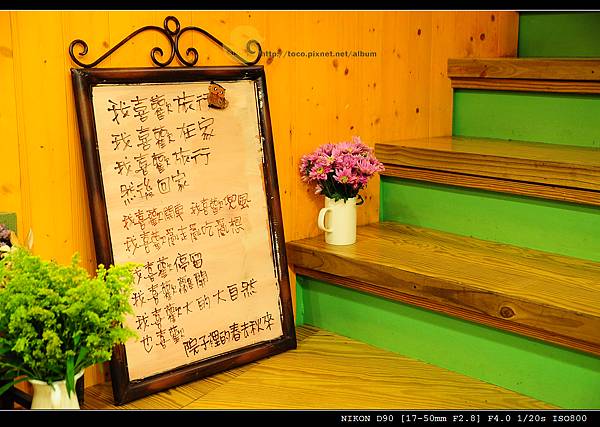 http://toco.pixnet.net/album
我喜歡旅行
我喜歡在家
我喜歡旅行
然後回家
我喜歡開車 我喜歡兜風
我喜歡亂走亂吃亂想
我喜歡停留
我喜歡離開
我喜歡大的大自然
也喜歡 院子裡的春去秋來
NIKON D90 [17-50mm F2.8] F4.0 1/20s ISO800